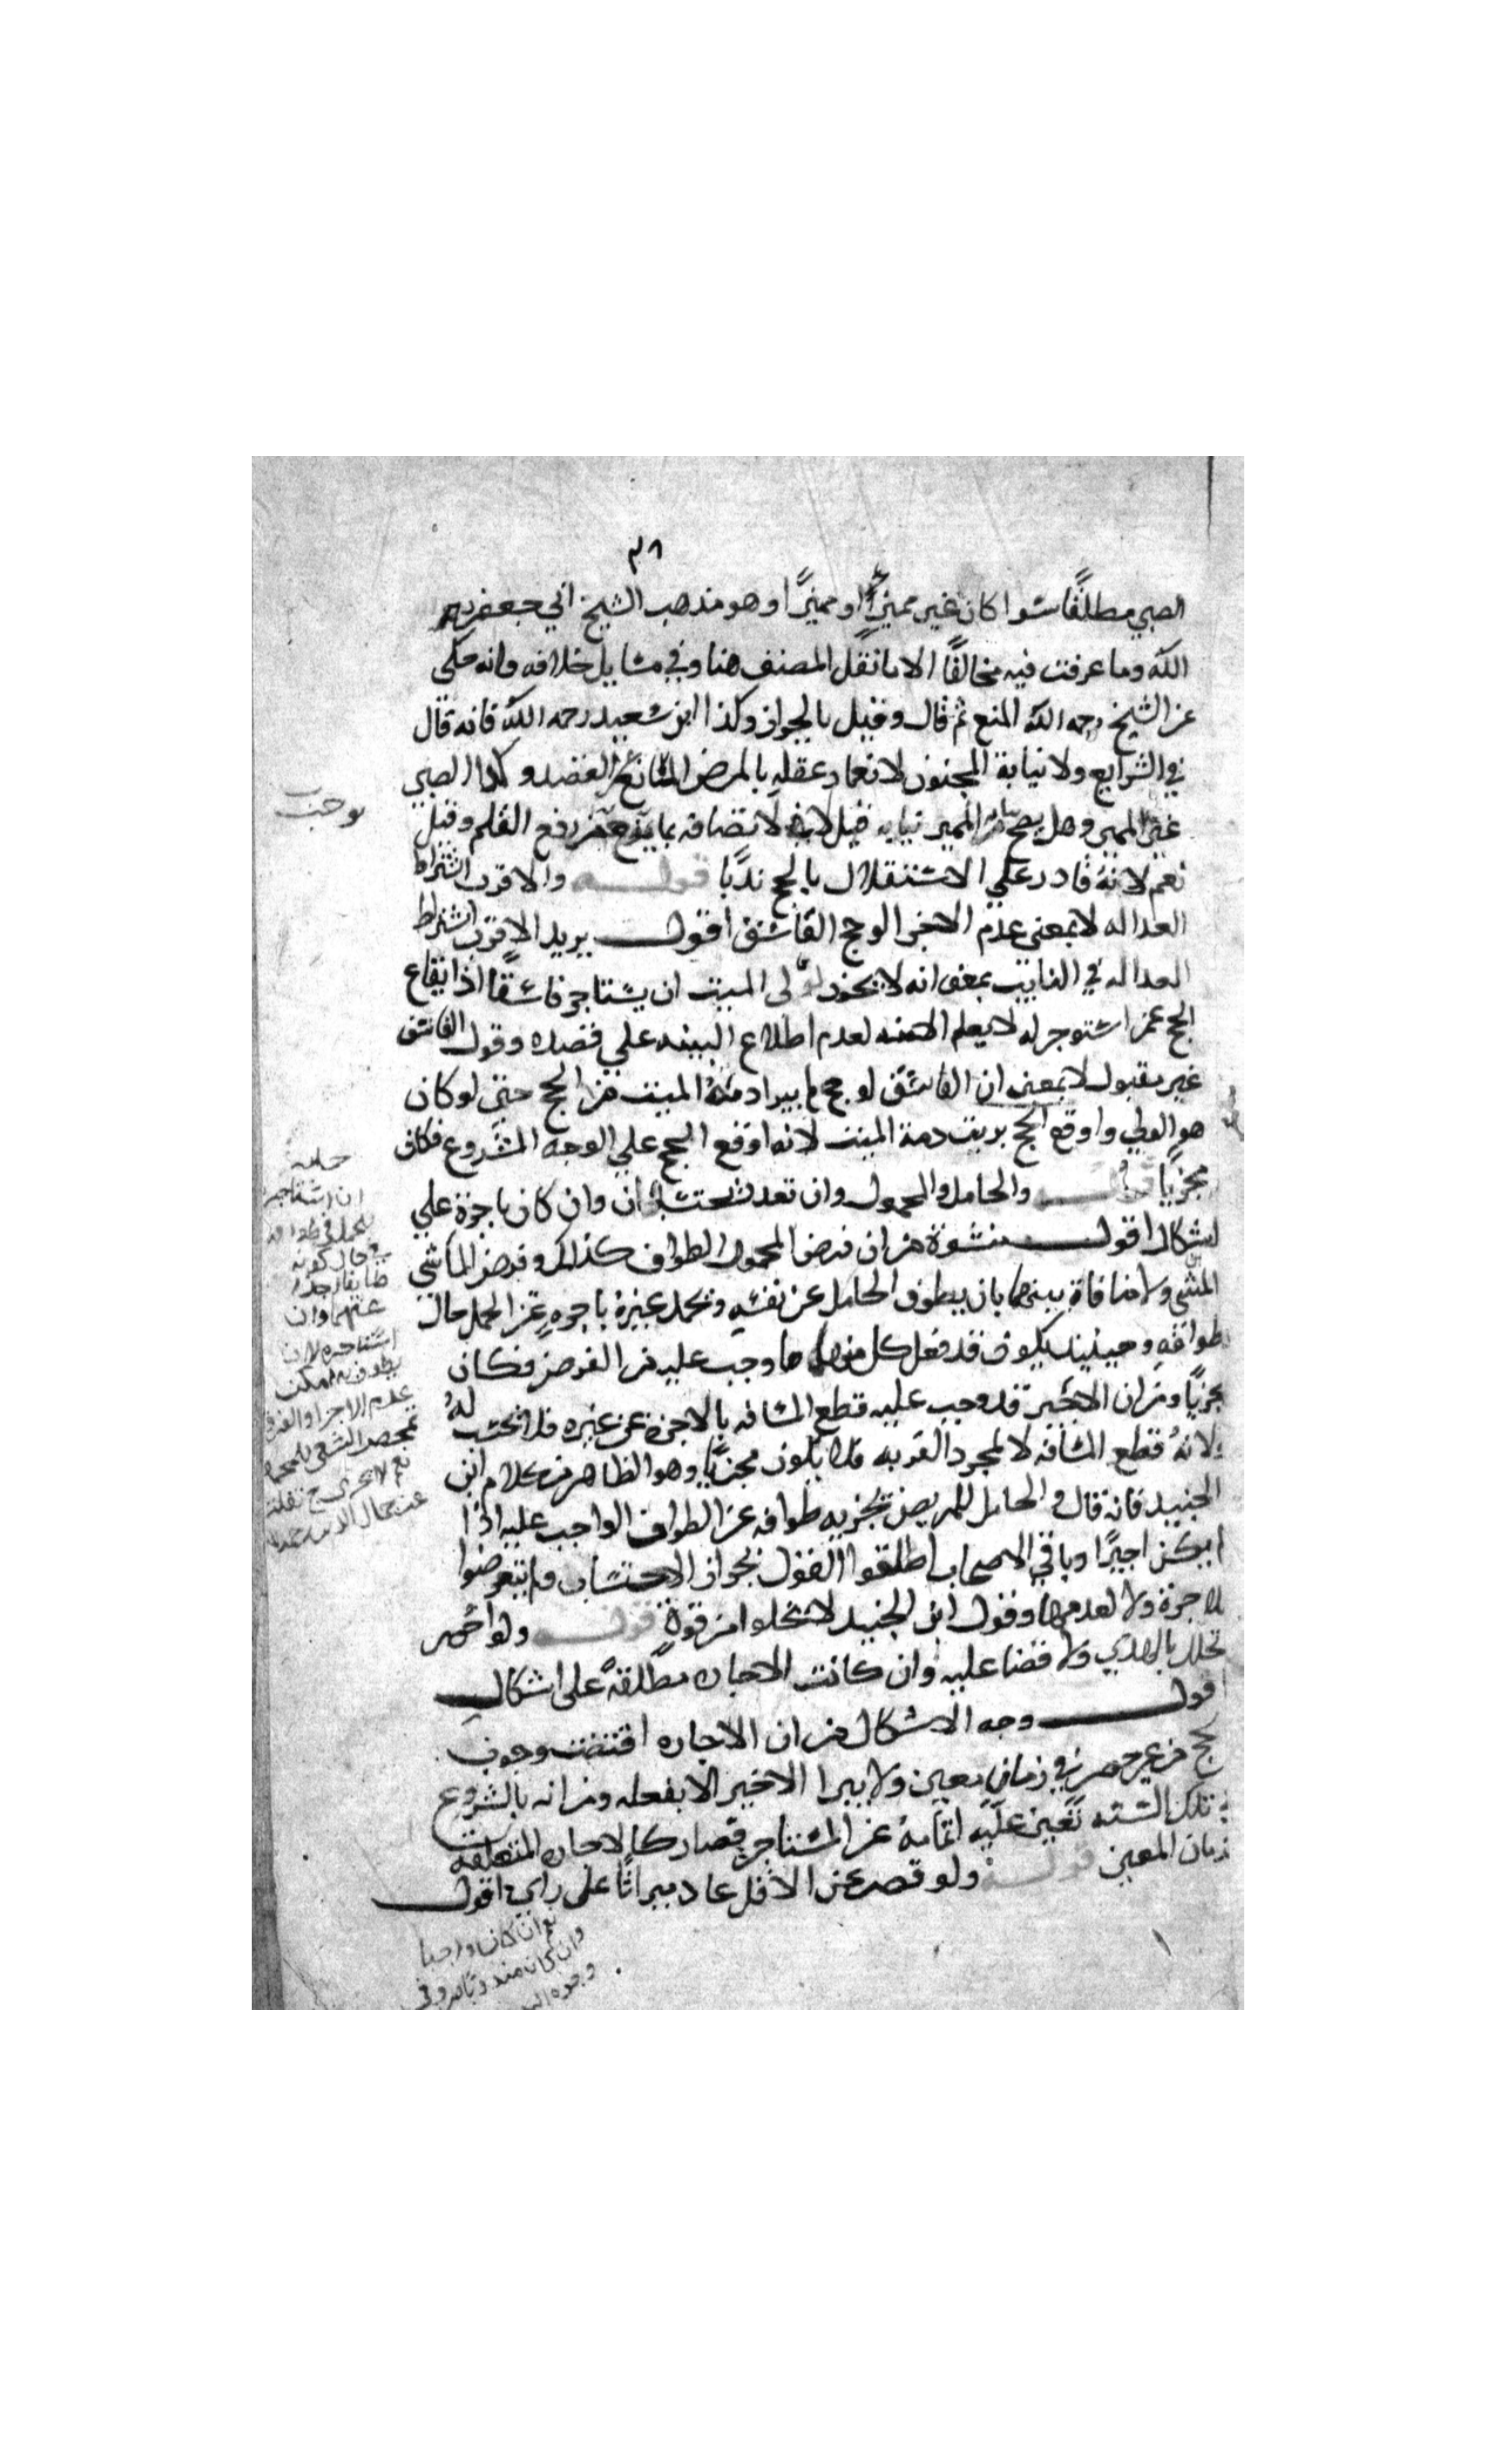 ٣٨
الصبي مطلقًا سوا كان غير مميزًا او مميزًا وهو مذهب الشيخ ابي جعفر رحمه
الله وما عرفت فيه مخالفًا الا ما نقل المصنف هنا وفي مسايل خلافه فانه حكى
عن الشيخ رحمه الله المنع ثم قال وقيل بالجواز وكذا ابن سعيد رحمه الله فانه قال
في الشرايع ولا نيابة المجنون لانغمار عقله بالمرض المانع من القصد وكذا الصبي
غير المميز وهل يصح من المميز نيابه قيل لا لاتصافه بما يوجب رفع القلم وقيل
نعم لانه قادر علي الاستقلال بالحج ندبًا قوله والاقرب اشتراط
العداله لا بمعنى عدم الاجزا لو حج الفاسق اقول يريد الاقرب اشتراط
العداله في النايب بمعنى انه لا يجوز لولى الميت ان يستاجر فاسقًا اذ ايقاع
الحج عمن استوجر له لا يعلم الا منه لعدم اطلاع البينه علي قصده وقول الفاسق
غير مقبول لا بمعنى ان الفاسق لو حج لم يبرا ذمة الميت من الحج حتى لو كان
هو الولي واوقع الحج بريت ذمة الميت لانه اوقع الحج علي الوجه المشروع فكان
مجزيًا قوله والحامل والمحمول وان تعدد يحتسبان وان كان باجرة علي
اشكال اقول منشوه من ان فرض المحمول الطواف كذلك وفرض الماشي
المشي ولا منافاة بينهما بان يطوف الحامل عن نفسه ويحمل غيره باجره عن الحمل حال
طوافه وحينيذ يكون قد فعل كل منهما ما وجب عليه من الفرض فكان
مجزيًا ومن ان الاجير قد وجب عليه قطع المسافه بالاجرة عن غيره فلا يحتسب له
ولانه قطع المسافه لا لمجرد القربه فلا يكون مجزيًا وهو الظاهر من كلام ابن
الجنيد فانه قال والحامل للمريض يجزيه طوافه عن الطواف الواجب عليه اذا
لم يكن اجيرًا وباقي الاصحاب اطلقوا القول بجواز الاحتساب ولم يتعرضوا
للاجرة ولا لعدمها وقول ابن الجنيد لا يخلوا من قوة قوله ولو احصر
تحلل بالهدي ولا قضا عليه وان كانت الاجاره مطلقة على اشكال
اقول وجه الاشكال من ان الاجاره اقتضت وجوب
الحج من غير حصر في زمان معين ولا يبرا الاجير الا بفعله ومن انه بالشروع
في تلك السنه تعين عليه اتمامه عن المستاجر فصار كالاجاره المتعلقه
بزمان المعين قوله ولو قصر عن الاقل عاد ميراثًا على راي اقول
يوجب
حمله
ان استاجره
للحمل في طوافه
في حال كونه
طايفا اجزا
عنهما وان
استاجره لان
يطوف به امكن
عدم الاجزا والفرق
نعم ان كان واجبا
وان كان مندوبا